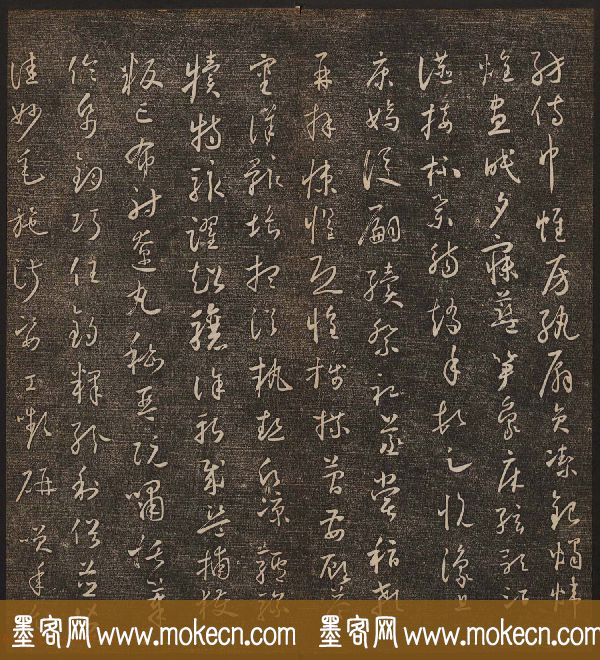 紡侍巾帷房紈扇員潔銀燭煒
煌晝眠夕寐藍笋象床弦歌酒
讌接杯舉觴矯手頓足悅豫且
康嫡後嗣續祭祀蒸嘗稽顙
再拜悚懼恐惶牋牒簡要顧答
審詳骸垢想浴執熱願涼驢騾
犢特駭躍超驤誅斬賊盜捕獲
叛亡布射遼丸嵇琴阮嘯恬筆
倫紙鈞巧任釣釋紛利俗並皆
佳妙毛施淑姿工顰妍笑年
墨客网 www.mokecn.com 墨客网 www.mokecn.com